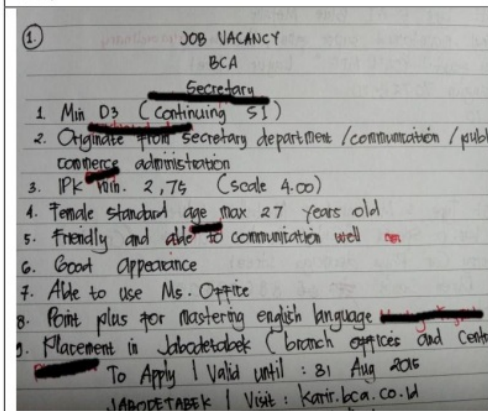 1.
JOB VACANCY
BCA
Secretary
1. Min D3 (Continuing S1)
2. Originate from secretary department / communication / publ
commerce administration
3. IPK min. 2,75 (scale 4.00)
4. Female standard age max 27 years old
5. Friendly and able to communication well
6. Good appearance
7. Able to use Ms. Office
8. Point plus for mastering english language
9. Placement in Jabodetabek (branch offices and centr
To Apply | Valid until : 31 Aug 2015
JABODETABEK | Visit : karir.bca.co.id